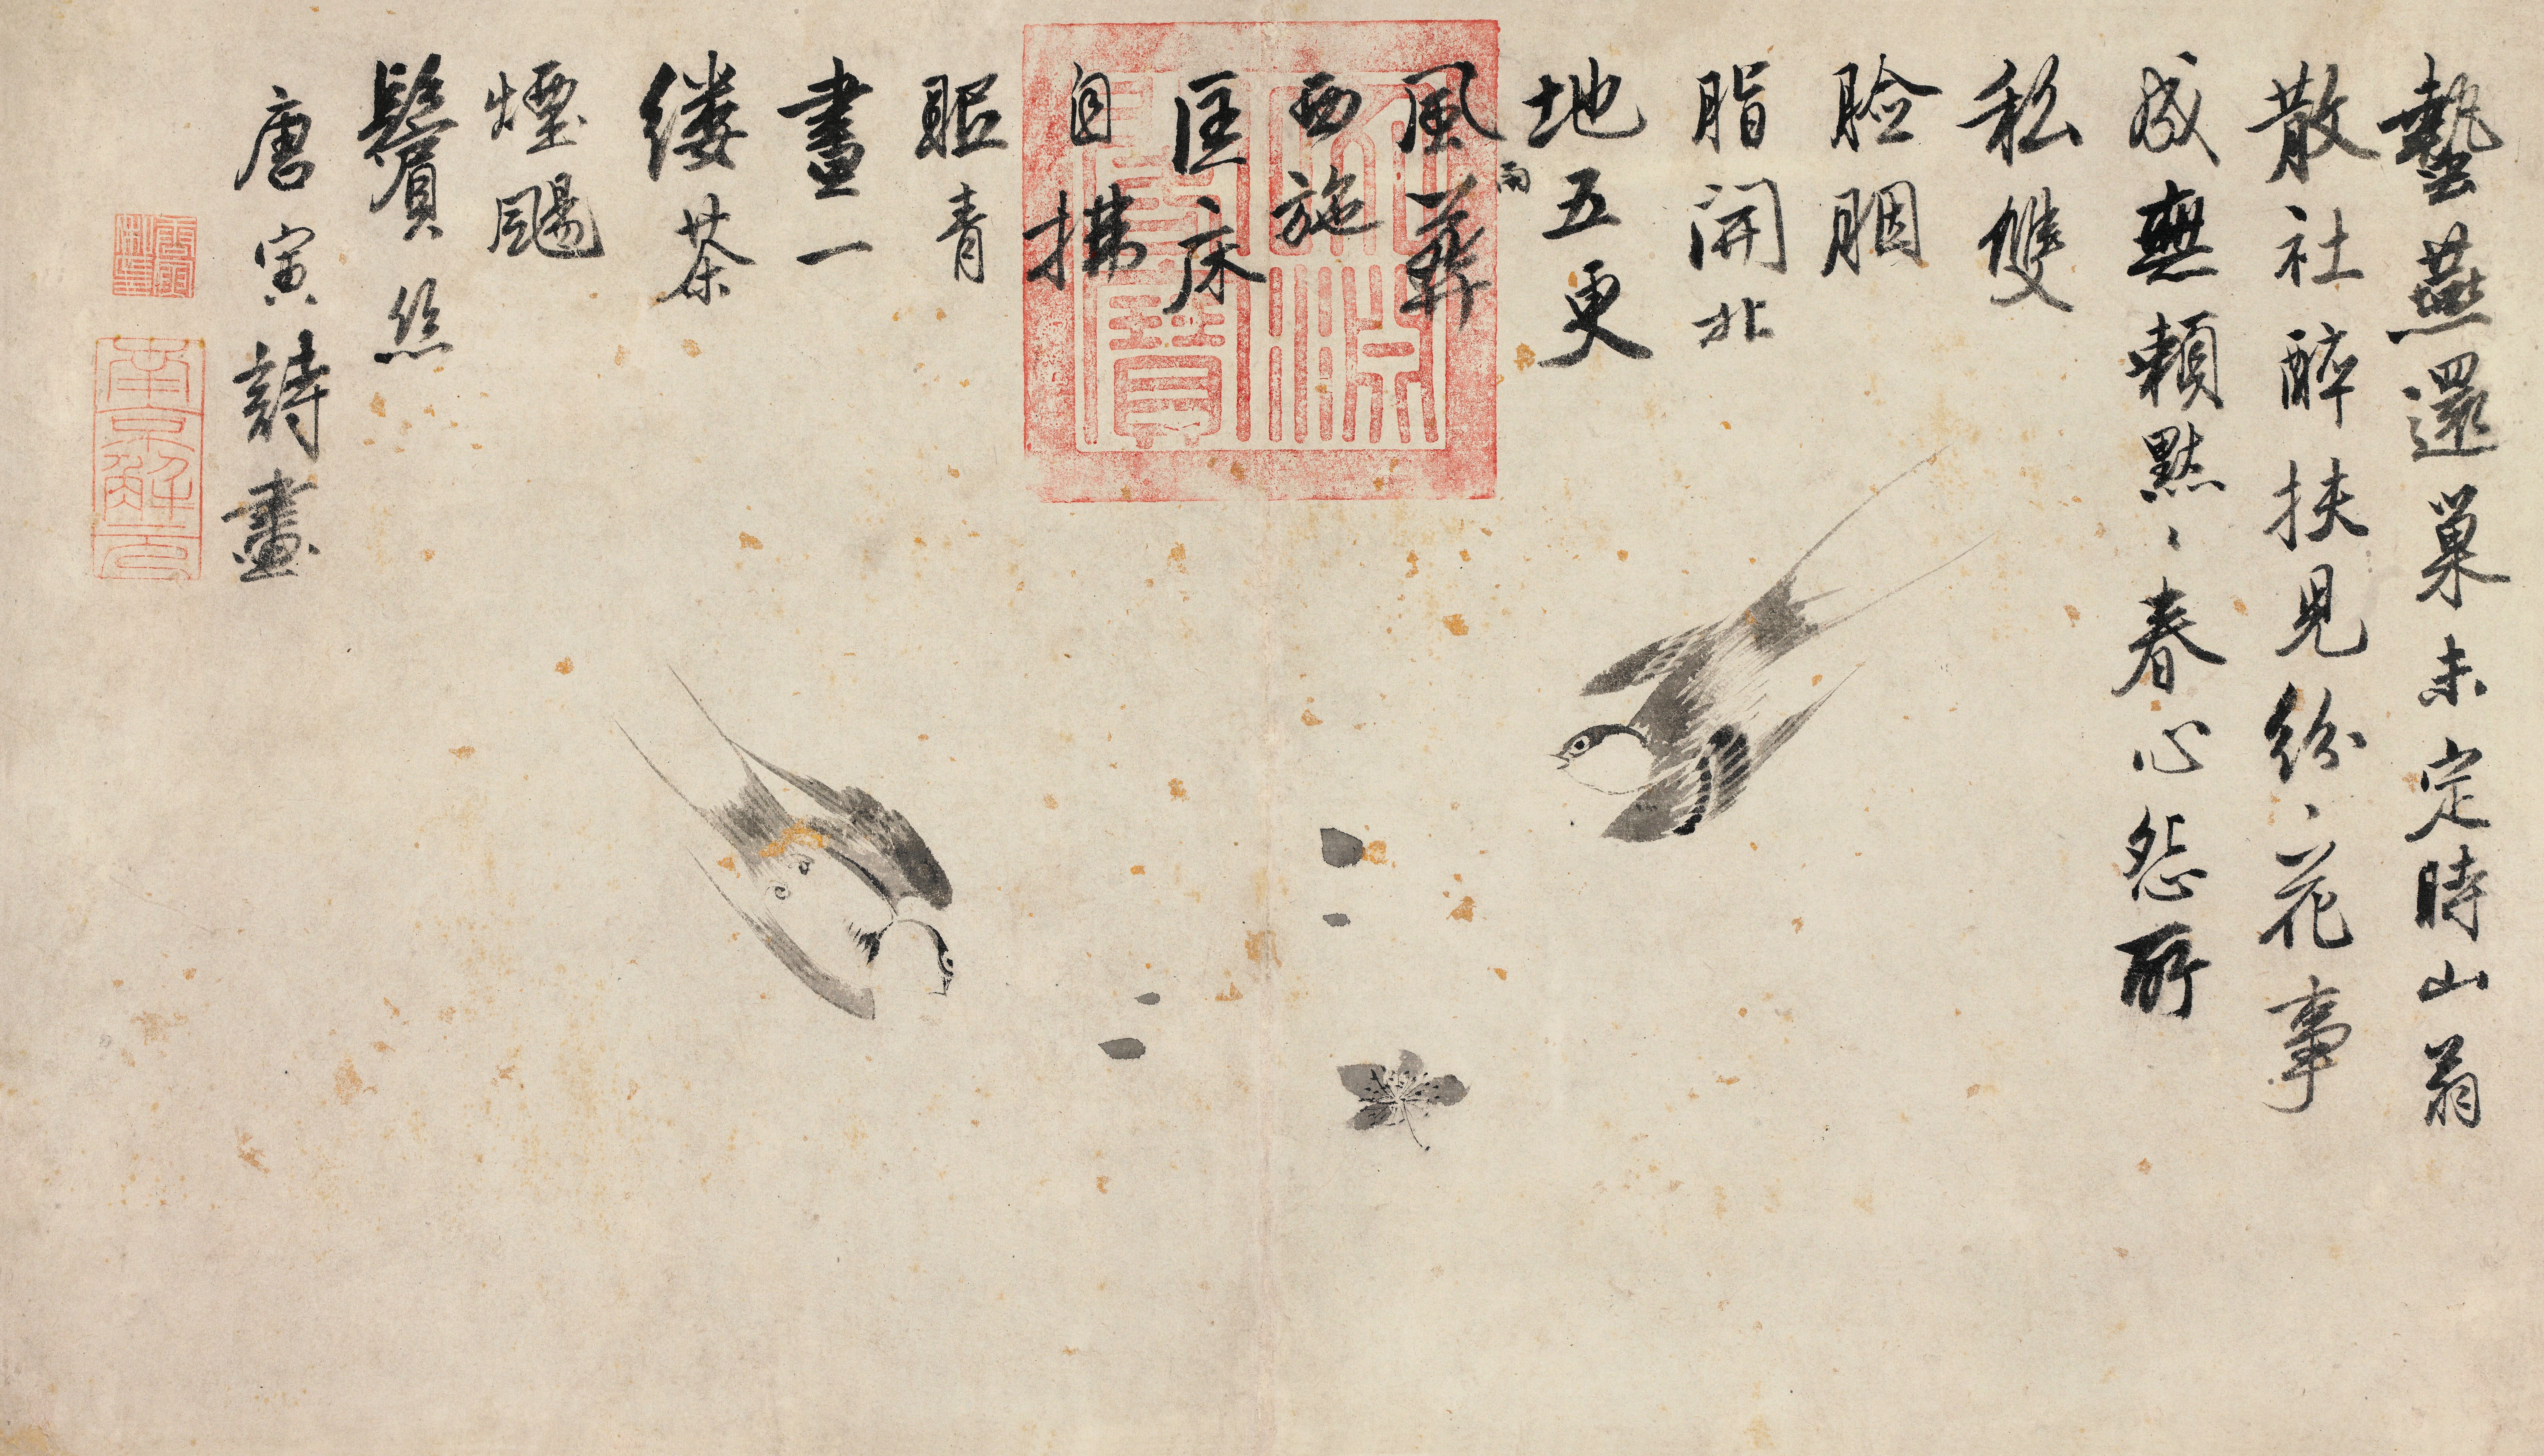 蟄燕還巢未定時山翁
散社醉扶兒紛、花事
成無賴默、春心怨所
私雙
臉胭
脂開北
地五更
風雨葬
西施
匡床
自拂
眠青
晝一
縷茶
煙颺
鬢絲
唐寅詩畫
唐寅私印
南京解元